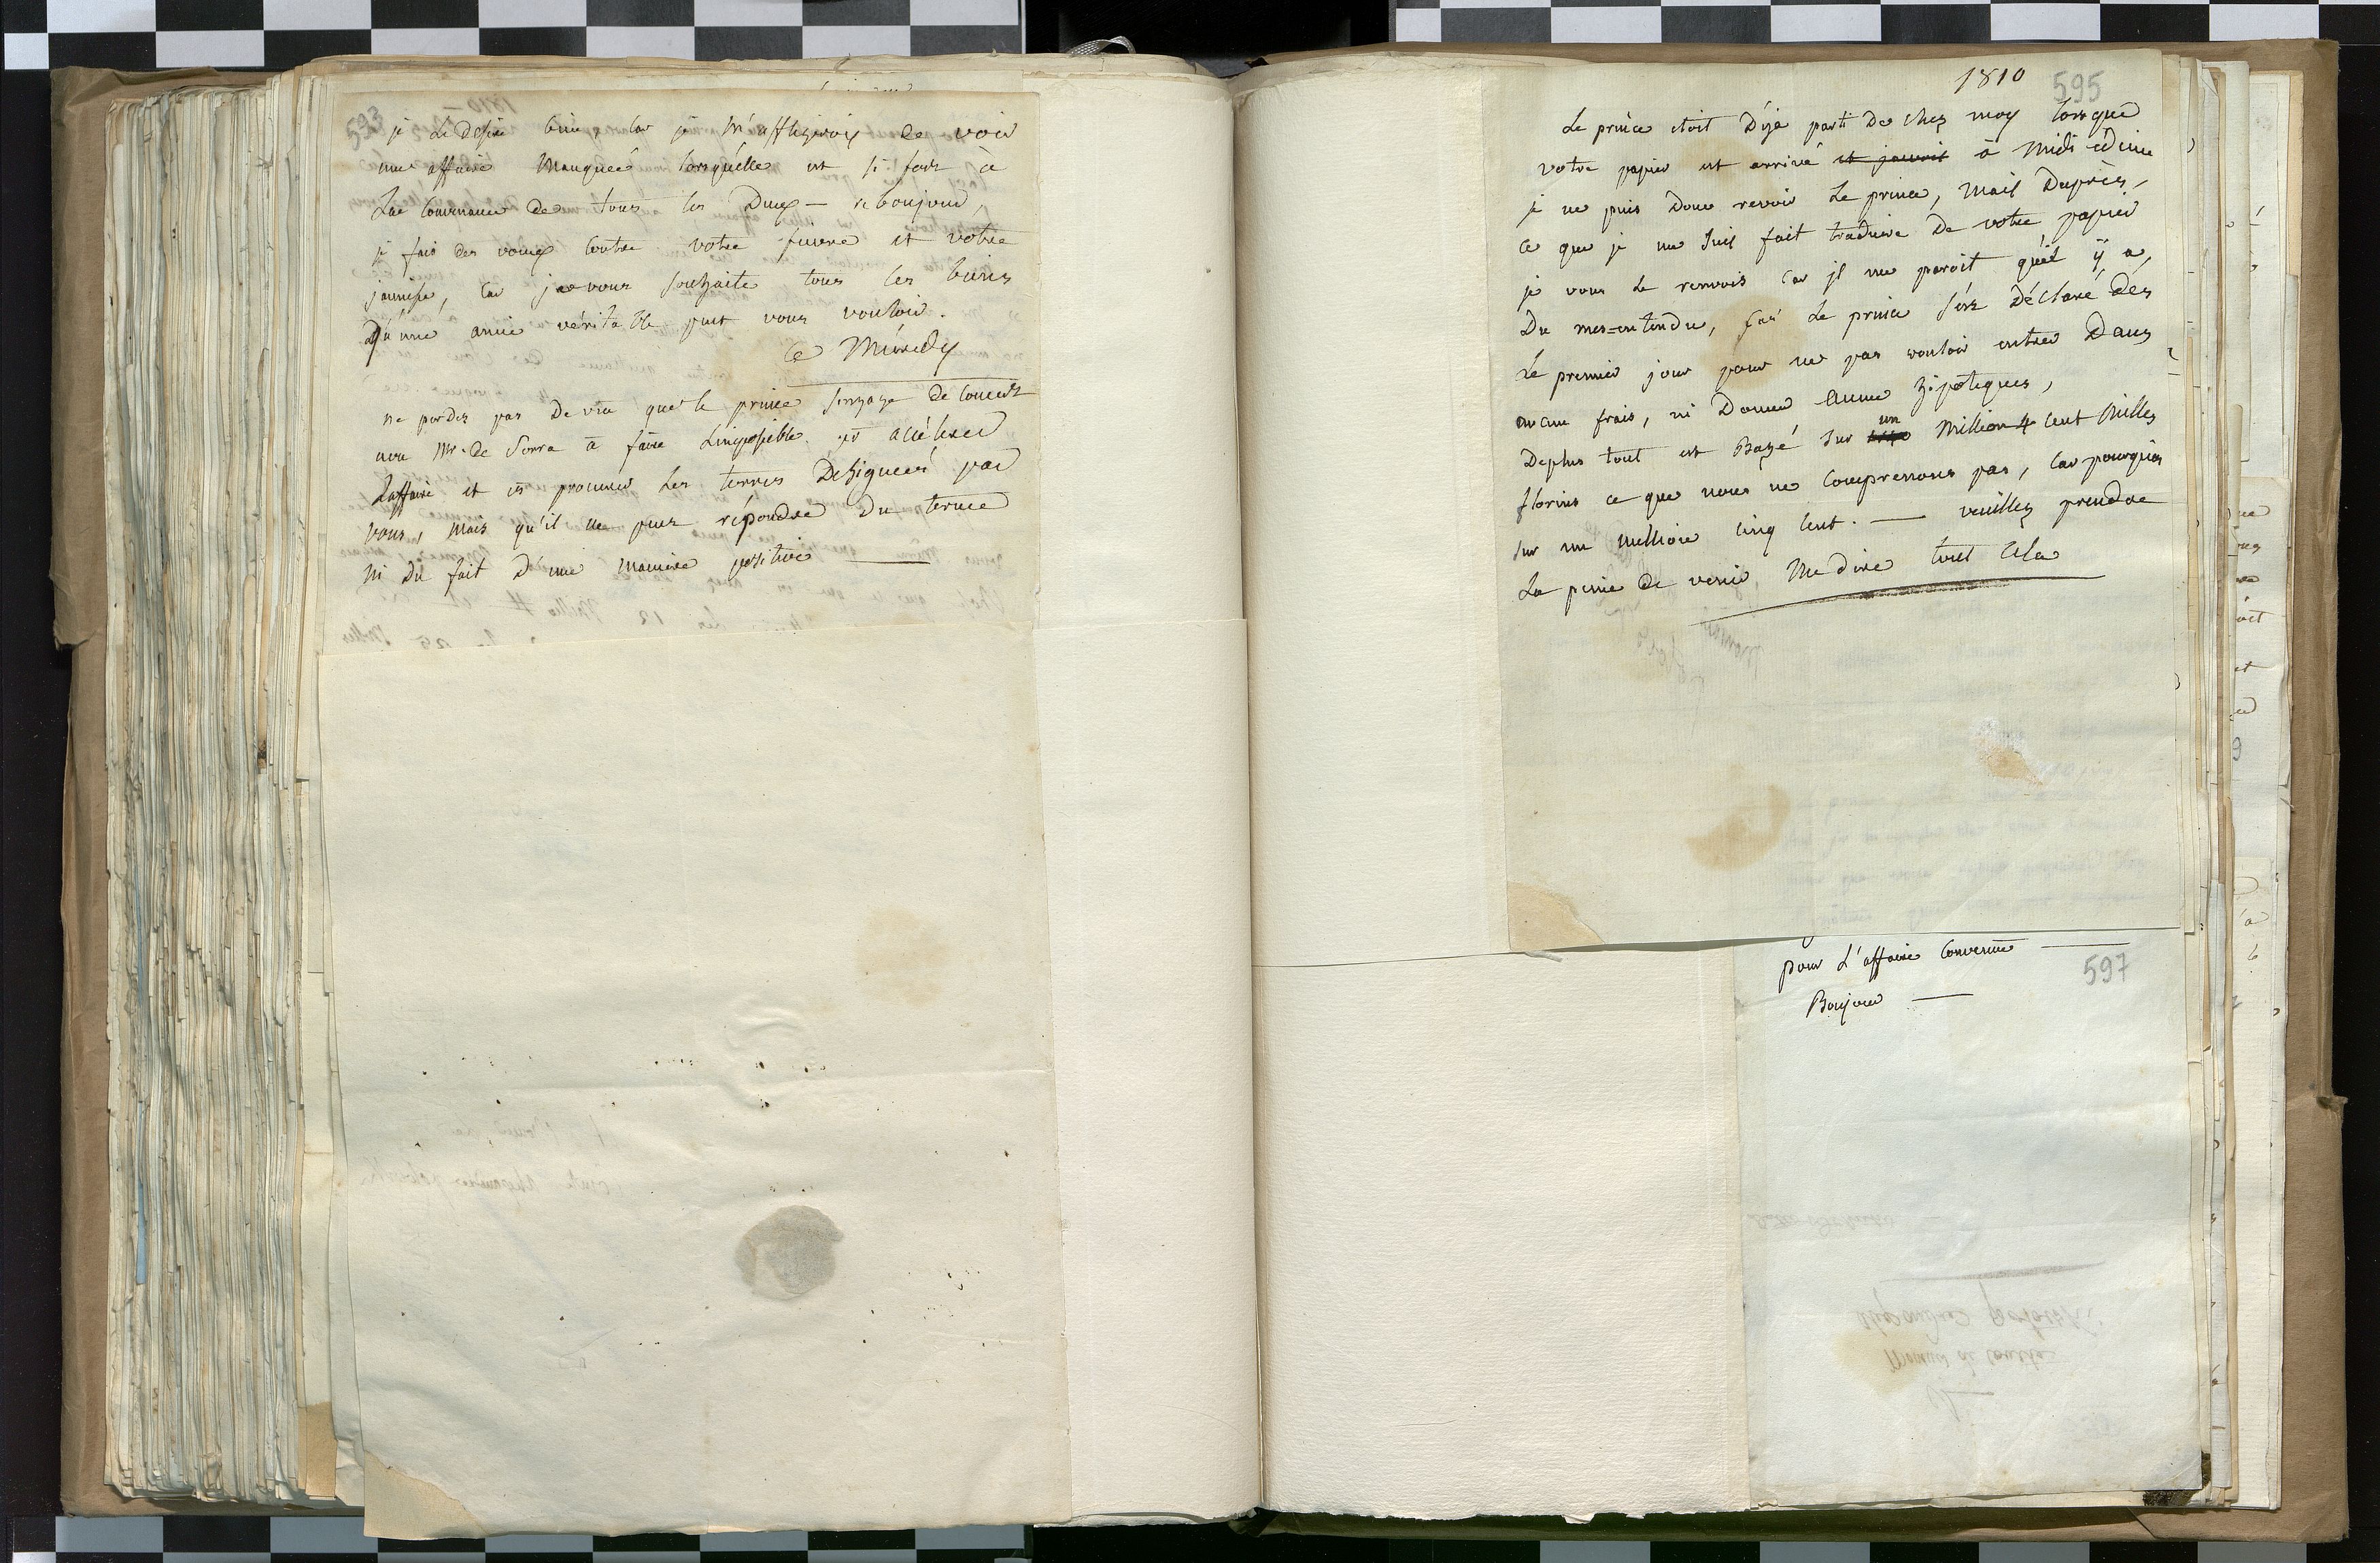 593
je le desire bien, car je m'affligerois de voir
une affaire manqueé lorsqu'elle est si fort à
La Convenance de tous les Deux — rebonjour,
je fais des voeux Contre votre fievre et votre
jaunisse, car je vous souhaite tous les biens
Qu'une amie véritable peut vous vouloir.
Ce Mércredy
ne perdez pas De vüe que le prince s'engage de Concert
avec Mr. de Serra à faire L'impossible pr accélérer
L'affaire et en procurer Les terres Désigneés par
vous, mais qu'il ne peut répondre Du terme
ni Du fait D'une maniere positive —
1810
595
Le prince etoit Déja parti De chez moy lorsque
votre papier est arrivé et j'aurois à midi
je ne puis Donc revoir Le prince, mais Dapreès,
ce que je me suis fait traduire De votre papier
je vous Le renvois car jl me paroit qu'il ÿ a,
Du mes=entendu, Le prince s'est Déclaré Dés
Le premier jour pour ne pas vouloir entrer Dans
aucun frais, ni Donner Aucune hipoteques,
Deplus tout est Bazé sur un Million 4 Cent Milles
florins ce que nous ne Comprenons pas, Car pourquoi
sur un million cinq Cent. — veuillez prendre
La peine De venir Me dire tout Cela
597
pour L'affaire Convenüe —
Bonjour —